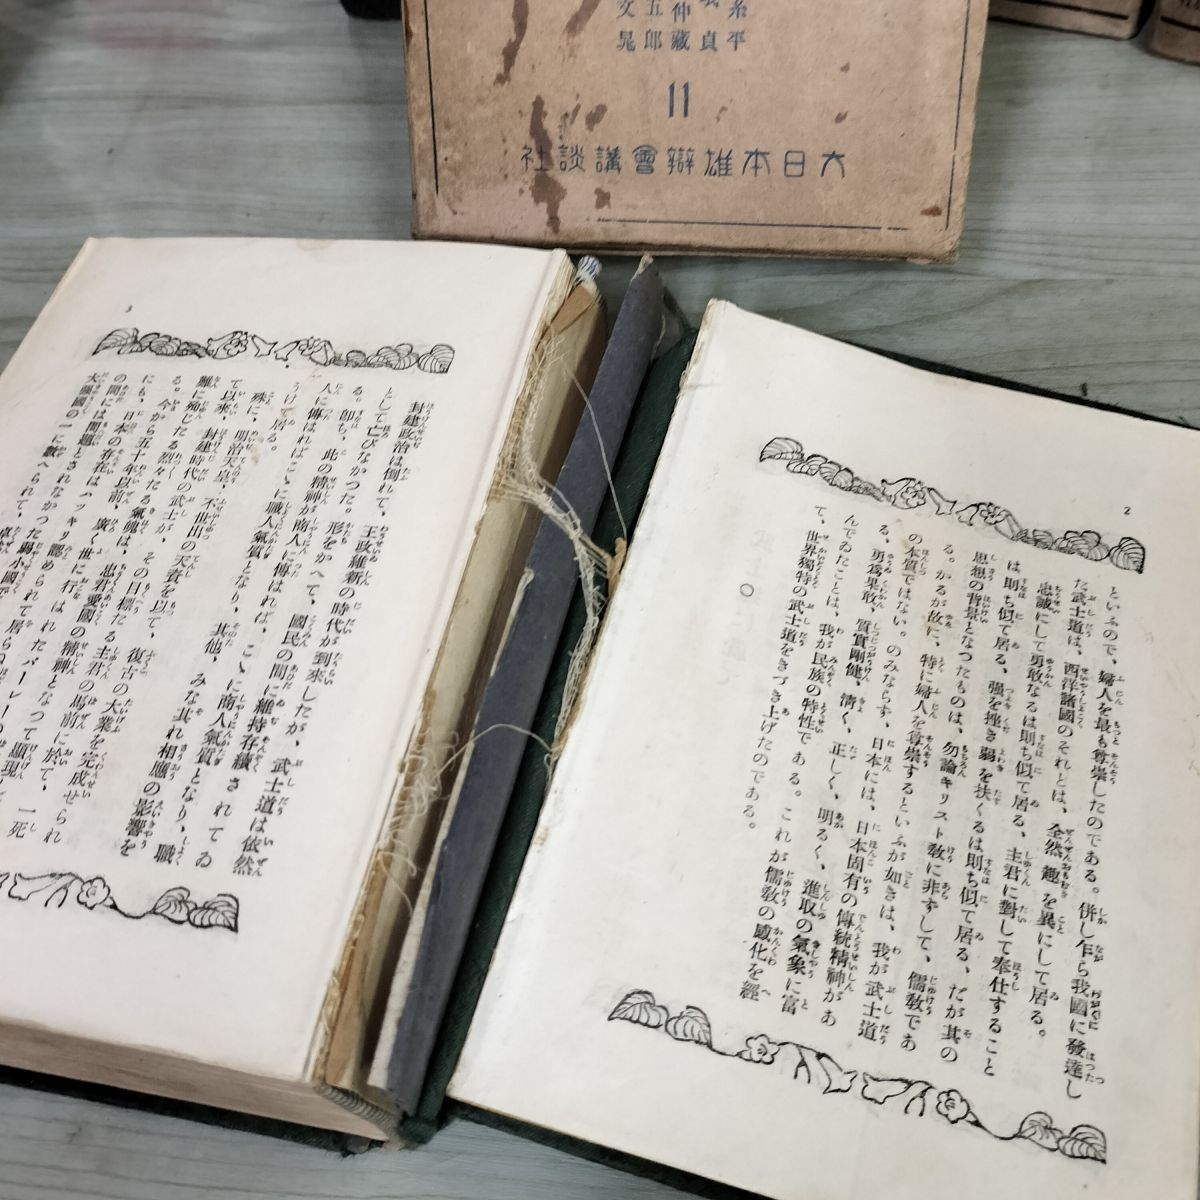 糸平
貞
仲藏
五郎
文晁
11
大日本雄辯會講談社
2
といふので、婦人を最も尊崇したのである。併し乍ら我國に發達し
た武士道は、西洋諸國のそれとは、全然趣を異にして居る。
忠誠にして勇敢なるは則ち似て居る、主君に對して奉仕すること
は則ち似て居る、强を挫き弱を扶くるは則ち似て居る、だが其の
思想の背景となつたものは、勿論キリスト敎に非ずして、儒敎であ
る。かるが故に、特に婦人を尊崇するといふが如きは、我が武士道
の本質ではない。のみならず、日本には、日本固有の傳統精神があ
る、勇爲果敢、質實剛健、淸く、正しく、明るく、進取の氣象に富
んでゐたことは、我が民族の特性である。これが儒敎の感化を經
て、世界獨特の武士道をきづき上げたのである。
○
3
封建政治は倒れて、王政維新の時代が到來したが、武士道は依然
として亡びなかつた。形をかへて、國民の間に維持存續されてゐ
る。卽ち、此の精神が商人に傳はれば、こゝに商人氣質となり、職
人に傳はればこゝに職人氣質となり、其他、みな其れ相應の影響を
うけて居る。
殊に、明治天皇、不世出の天資を以て、復古の大業を完成せられ
て以來、封建時代の武士が、その目標たる主君の馬前に於て、一死
難に殉じたる烈々たる氣魄は、忠君愛國の精神となつて顯現し
る。今から五十年以前、廣く世に行はれたパーレーの
にも、日本の存在はハツキリ認められて
の間には問題とされなかつた弱小國で
大强國の一に數へられて、